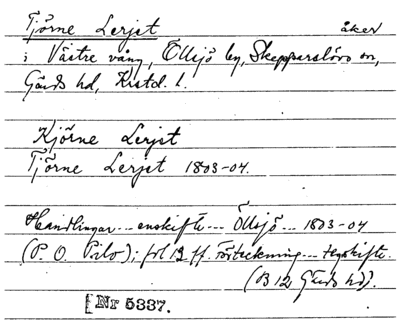 Tjörne Lerjet åker
i Västre vång, Öllsjö by, Skepparslövs sn,
Gärds hd, Kristd. l.
Kjörne Lerjet
Tjörne Lerjet 1803-04.
Handlingar --- enskifte --- Öllsjö --- 1803-04
(P. O. Pilo); fol 13 ff Förteckning --- tegskifte.
(B 12 Gärds hd).
[Nr 5337.